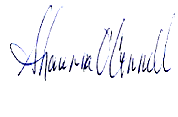 Shaunna O'Connell